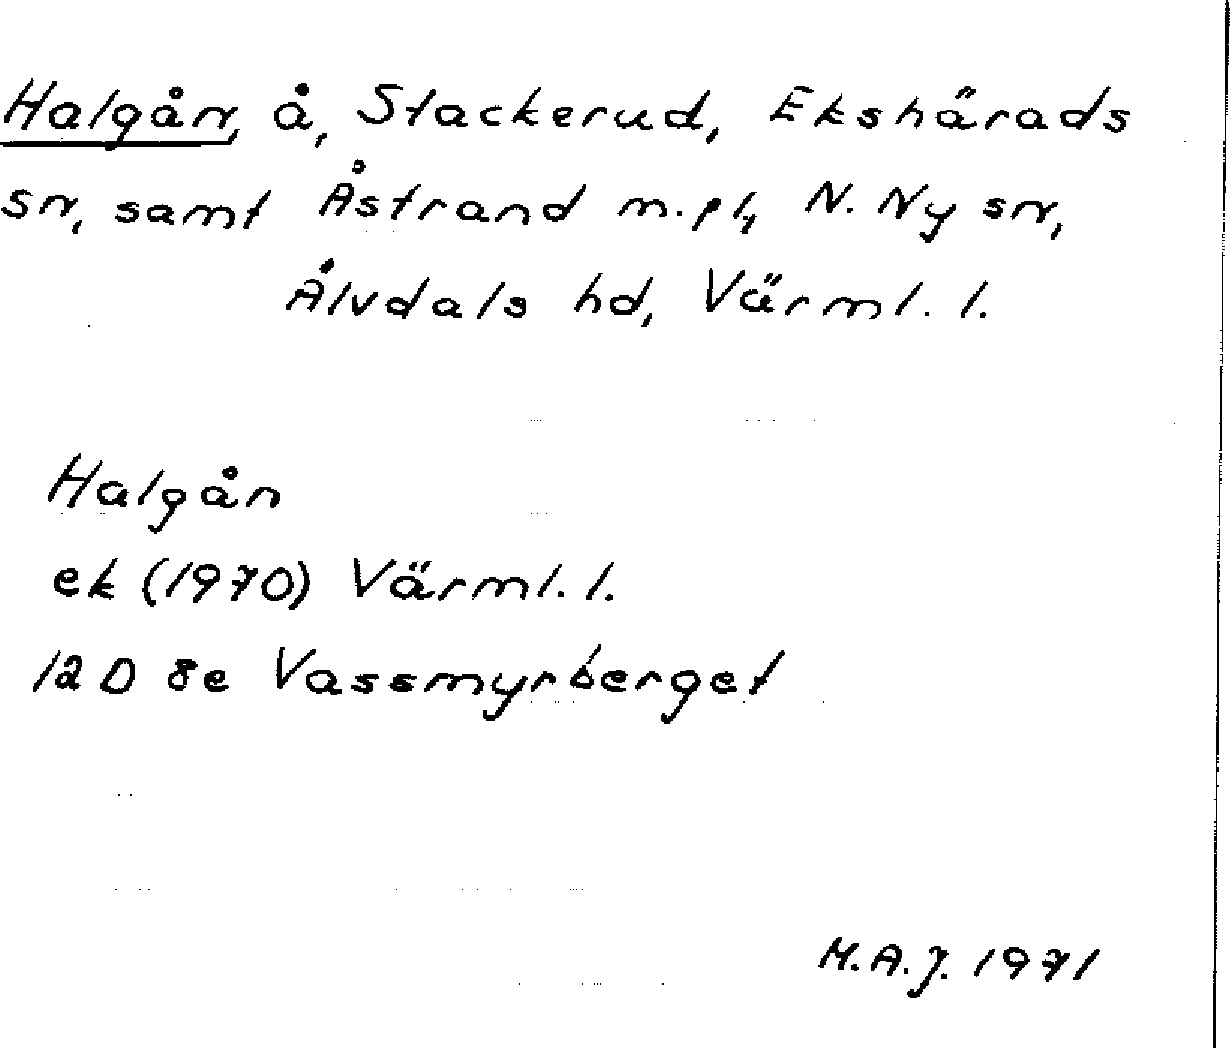 Halgån, å, Stackerud, Ekshärads
sn, samt Åstrand m.fl, N. Ny sn,
Älvdals hd, Värml. l.
Halgån
ek (1970) Värml. l.
12 D 8e Vassmyrberget
M.A.J. 1971